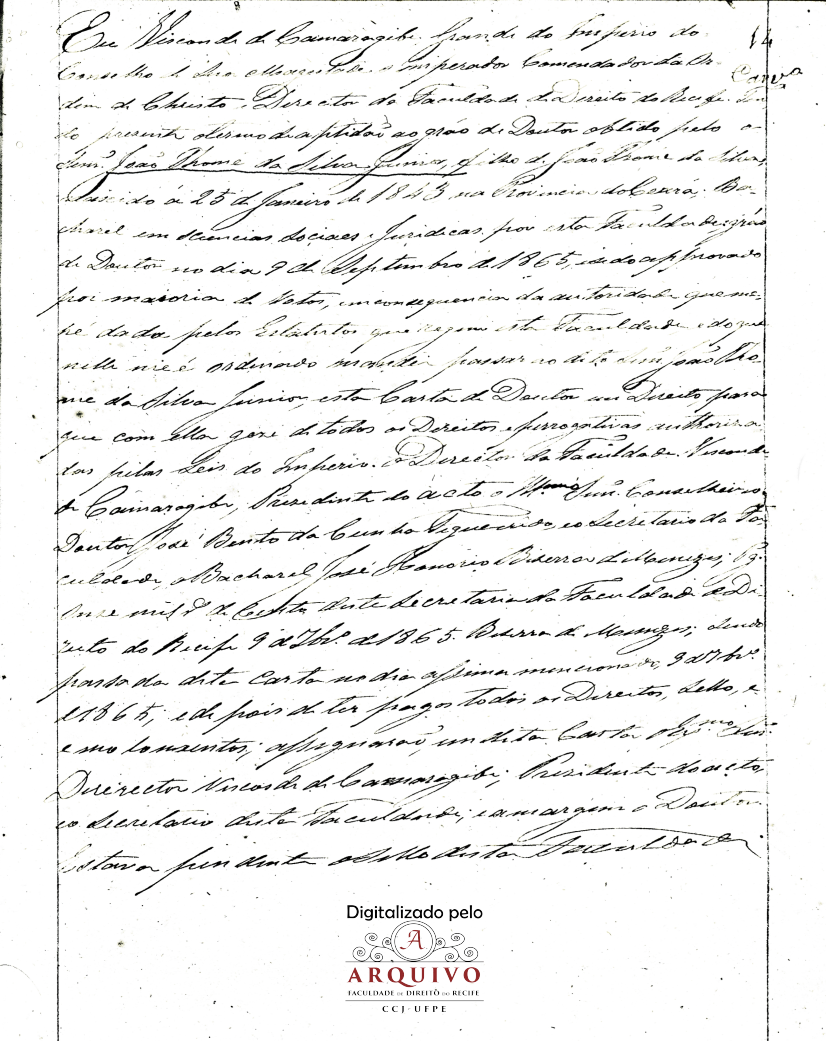 14
Eu Visconde de Camaragibe Grande do Imperio do
Conselho de Sua Magestade o Imperador Comendador da Or-
dem de Christo, Director da Faculdade de Direito do Recife. Ten-
do presente o termo de aptidaõ ao gráo de Doutor obtido pelo
Senr. Joaõ Thome da Silva Junior, filho de Joaõ Thome da Silva,
nascido á 25 de Janeiro de 1843 na Provincia do Ceará; Ba-
charel em sciencias sociaes e Juridicas, por esta Faculdade; gráo
de Doutor no dia 9 de Septembro de 1865, sido approvado
por maioria de Votos, em consequencia da autoridade que me
hé dada pelos Estatutos que regem esta Faculdade e do que
nelle me é ordenado mandei passar ao dito Senr. Joaõ Tho-
me da Silva Junior, esta Carta de Doutor em Direito, para
que com ella goze de todos os Direitos e perrogativas authoriza-
das pelas Leis do Imperio. O Director da Faculdade. Visconde
de Camaragibe, Presidente do acto o Senr. Conselheiro
Doutor José Bento da Cunha Figueiredo, e o Secretario da Fa-
culdade, o Bacharel José Honorio Biserra de Menezes;
onse mil r de desta Secretaria da Faculdade de Di-
reito do Recife 9 de 7brº de 1865. Biserra de Menezes; sendo
passada dita Carta no dia assima mencionado, 9 de 7brº
de 1865, e depois de ter pagos todos os Direitos, Sello, e
emolumentos; assignaraõ, em dita Carta o Senr.
Direrector Visconde de Camaragibe; Presidente do acto,
e o Secretario desta Faculdade; e a margem o Doutor
Estava pendente o Sello desta Faculdade.
Digitalizado pelo
A
ARQUIVO
FACULDADE DE DIREITO DO RECIFE
CCJ-UFPE